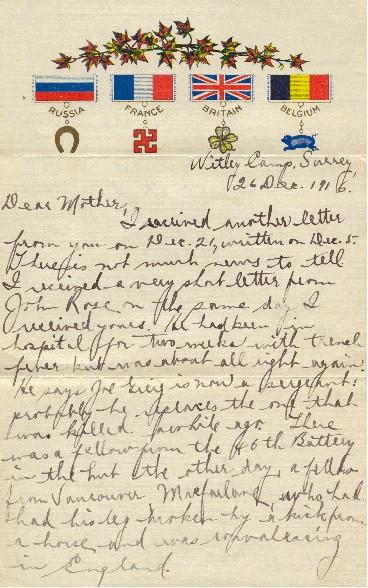 RUSSIA FRANCE BRITAIN BELGIUM
Witley Camp, Surrey,
26 Dec. 1916.
Dear Mother,
I received another letter
from you on Dec. 21, written on Dec. 5.
There is not much news to tell
I received a very short letter from
John Rose on the same day I
received yours. He had been in
hospital for two weeks with trench
fever but was about all right again.
He says Joe Greig is now a sergeant:
probably he replaces the one that
was killed awhile ago. There
was a fellow from the 46th Battery
in the hut the other day, a fellow
from Vancouver, Macfarland, who had
had his leg broken by a kick from
a horse and was convalescing
in England.